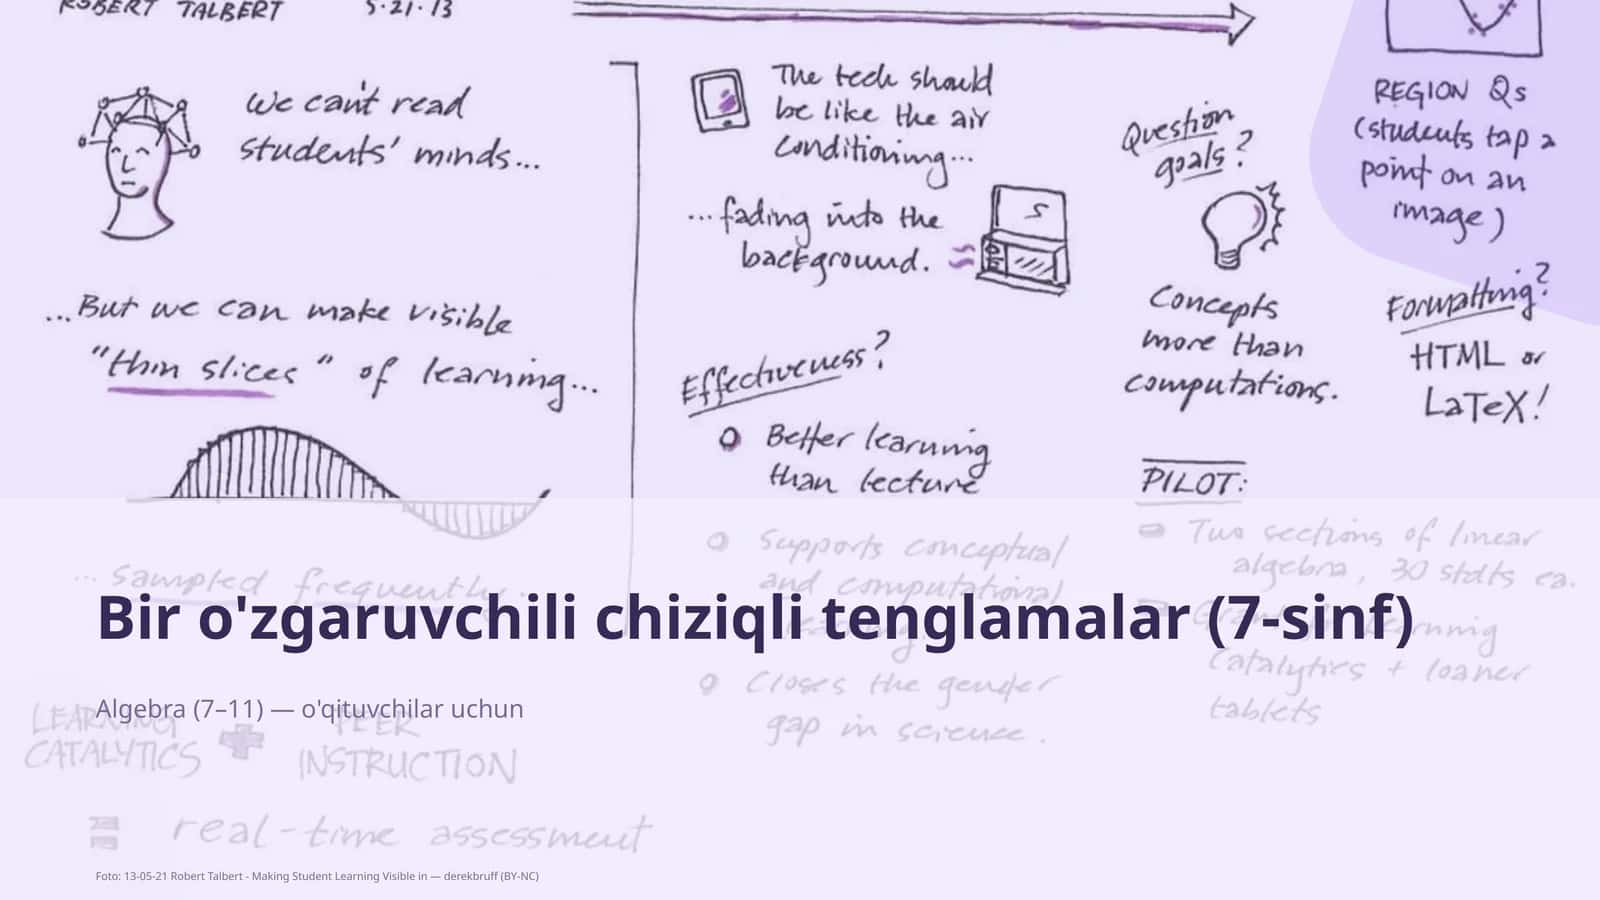 ROBERT TALBERT 5·21·13
We can't read
students' minds...
...But we can make visible
"thin slices" of learning...
... sampled frequently.
LEARNING
CATALYTICS
PEER
INSTRUCTION
= real-time assessment
The tech should
be like the air
conditioning...
...fading into the
background.
Effectiveness?
Better learning
than lecture
Supports conceptual
and computational
learning
Closes the gender
gap in science.
Question
goals?
Concepts
more than
computations.
PILOT:
Two sections of linear
algebra, 30 stdts ea.
learning
Catalytics + loaner
tablets
REGION Qs
(students tap a
point on an
image)
Formatting?
HTML or
LaTeX!
Bir o'zgaruvchili chiziqli tenglamalar (7-sinf)
Algebra (7–11) — o'qituvchilar uchun
Foto: 13-05-21 Robert Talbert - Making Student Learning Visible in — derekbruff (BY-NC)